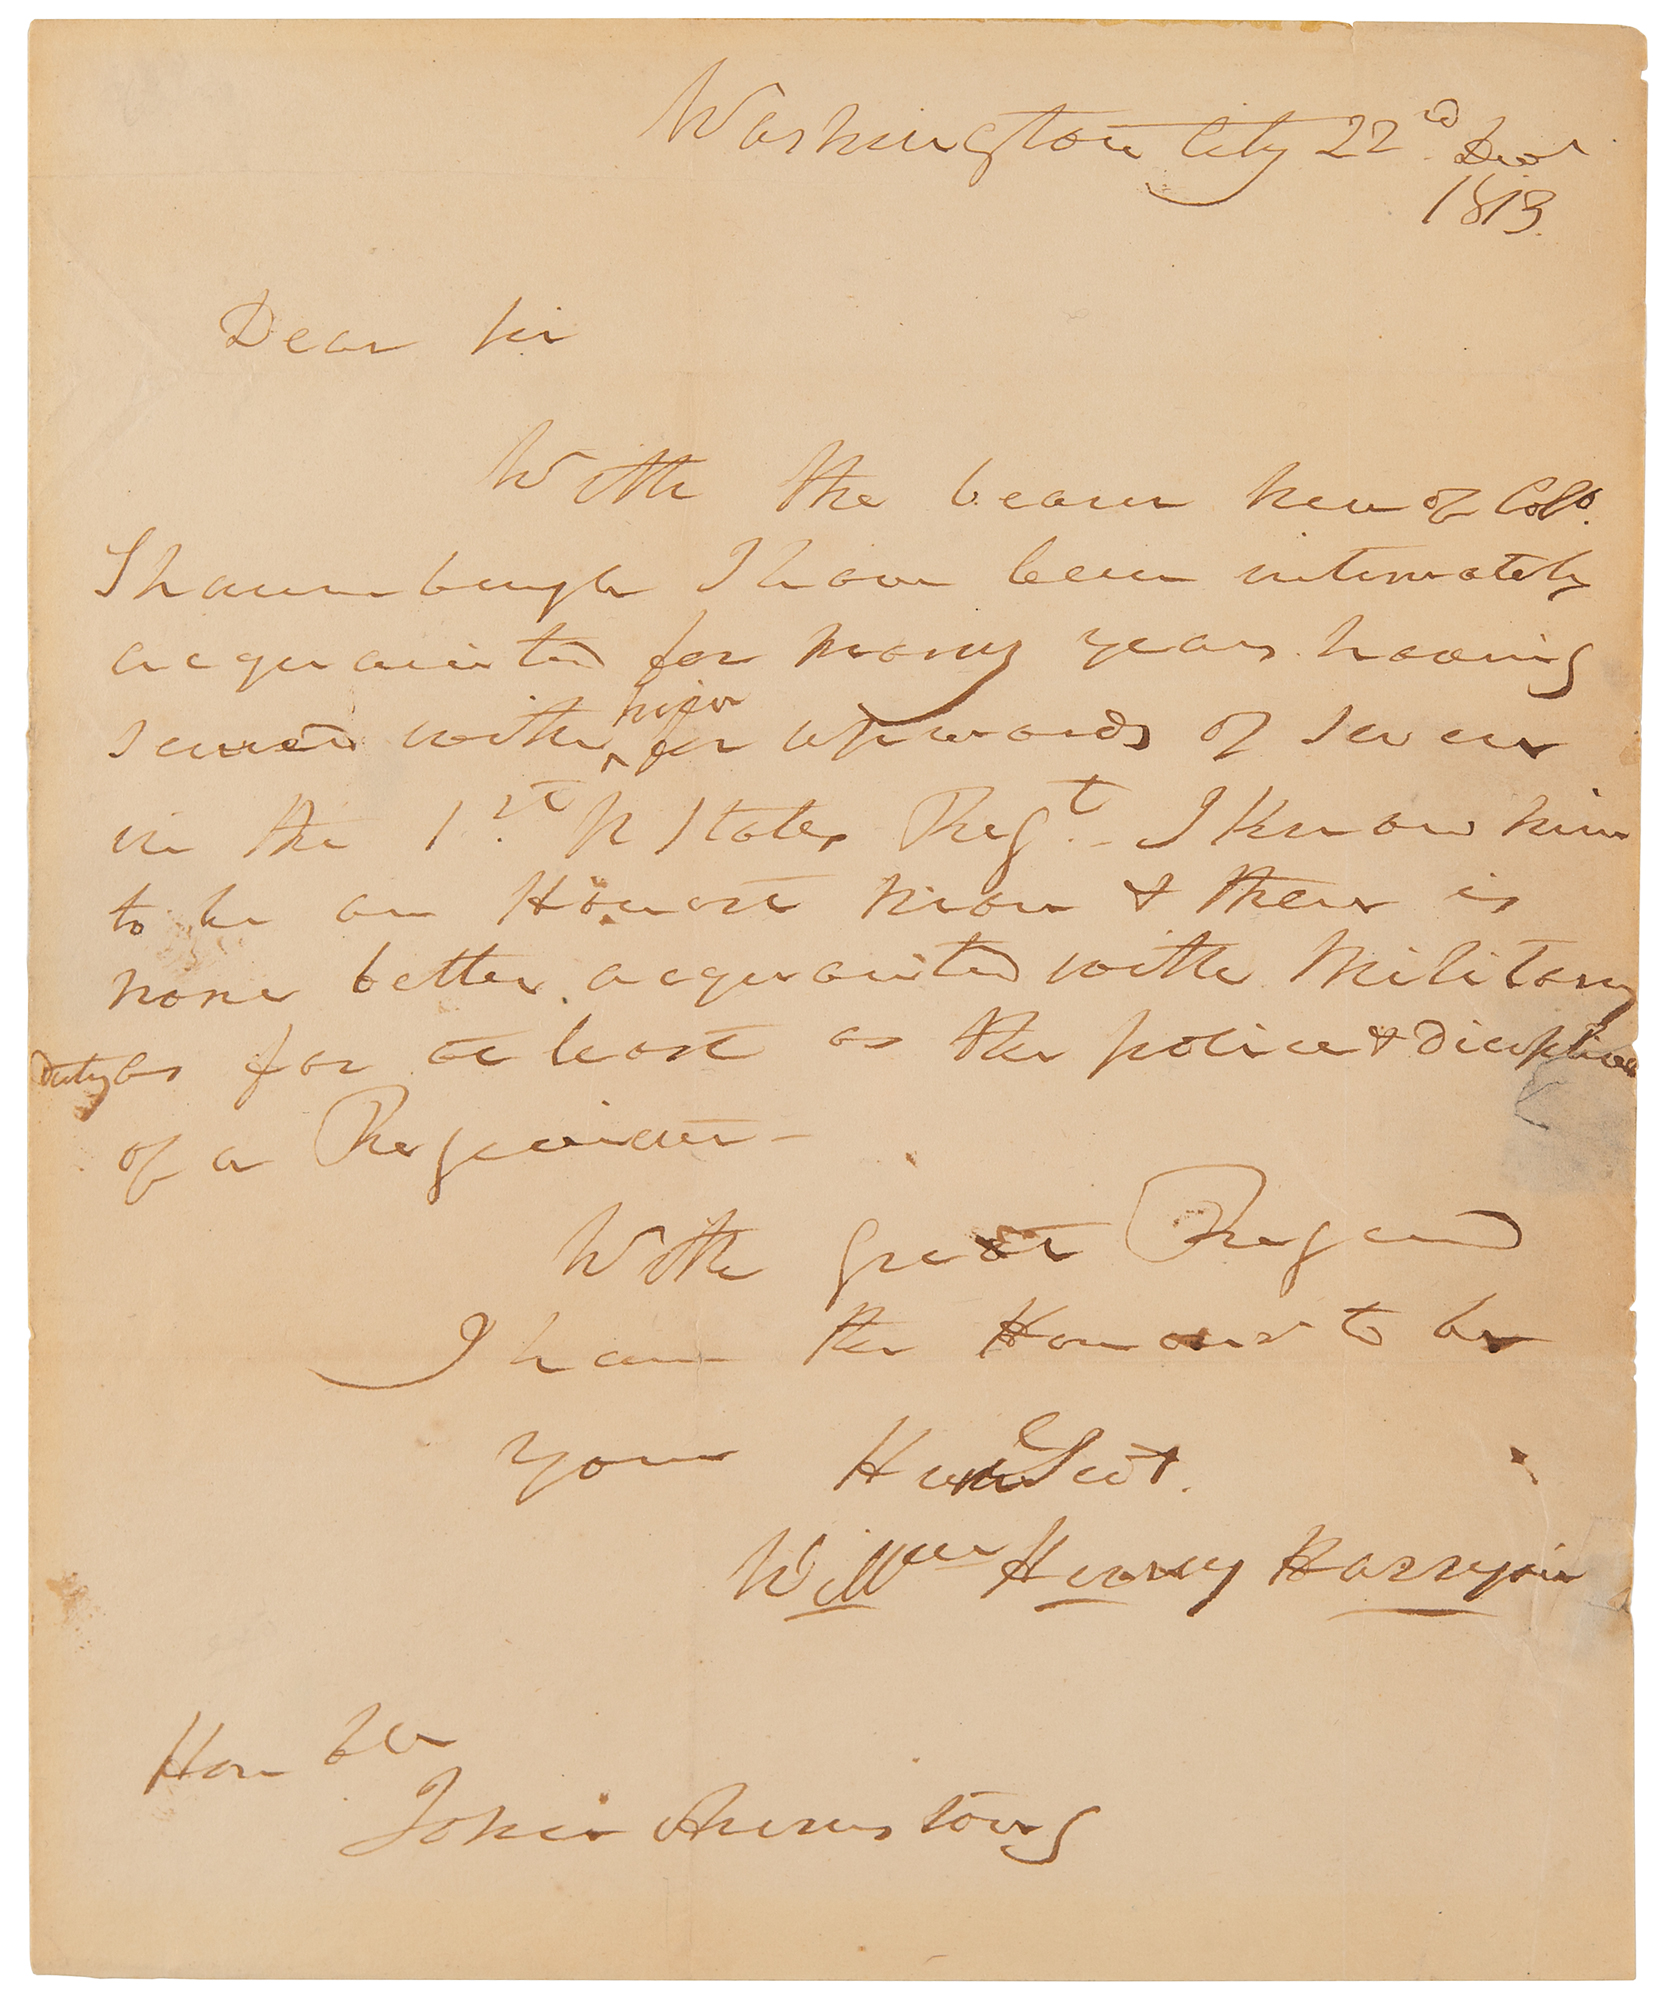 Washington City 22d Decr
1813.
Dear Sir
With the bearer hereof Colo.
Shaumburgh I have been intimately
acquainted for many years having
served with him for upwards of seven
in the 1st. U States Regt. - I know him
to be an Honest man & there is
none better acquainted with Military
dutys for at least as the police & discipline
of a Regiment -
With great Regard
I have the Honour to be
your Hum Servt.
Willm Henry Harrison
Honble
John Armstrong